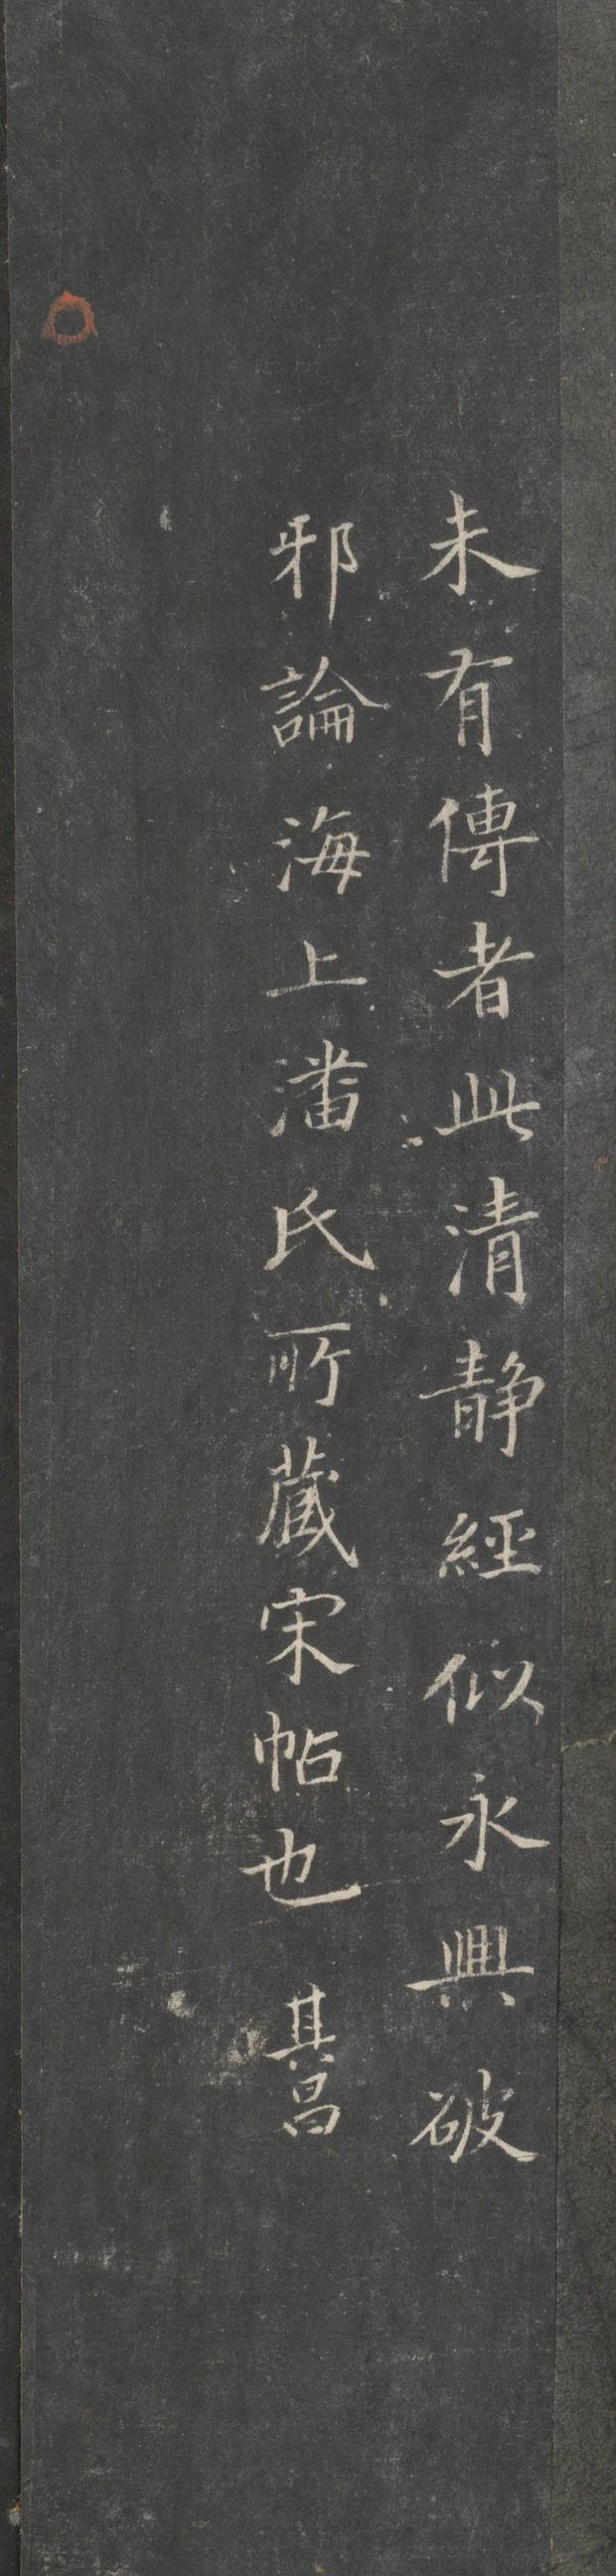 未有傳者此清靜經似永興破
邪論海上潘氏所藏宋帖也 其昌